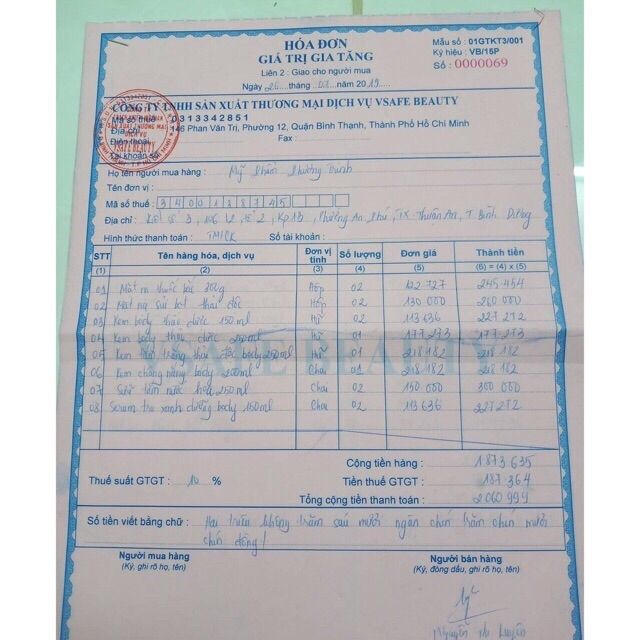 HÓA ĐƠN
GIÁ TRỊ GIA TĂNG
Liên 2 : Giao cho người mua
Ngày 26 tháng 07 năm 2019
Mẫu số : 01GTKT3/001
Ký hiệu : VB/15P
Số : 0000069
CÔNG TY TNHH SẢN XUẤT THƯƠNG MẠI DỊCH VỤ VSAFE BEAUTY
Mã số thuế : 0313342851
Địa chỉ : 146 Phan Văn Trị, Phường 12, Quận Bình Thạnh, Thành Phố Hồ Chí Minh
Điện thoại Fax :
Số tài khoản
Họ tên người mua hàng : Mỹ Phẩm Phương Trinh
Tên đơn vị :
Mã số thuế : 3400188745
Địa chỉ : Kp 13, Phường An Phú, TX Thuận An, T Bình Dương
Hình thức thanh toán : TM/CK Số tài khoản :
STT Tên hàng hóa, dịch vụ Đơn vị tính Số lượng Đơn giá Thành tiền
(1) (2) (3) (4) (5) (6) = (4) x (5)
01 Mặt nạ thuốc bắc 300g Hộp 02 122 727 245.454
02 Mặt nạ thải độc Hộp 02 130 000 260 000
03 Kem body thảo dược 150ml Hũ 02 113 636 227 272
04 Kem body thảo dược 250ml Hũ 01 177 273 177 273
05 Kem tắm trắng body 250ml Hũ 01 218 182 218 182
06 Kem chống nắng body 200ml Chai 01 218 182 218 182
07 Sữa tắm nước hoa 250ml Chai 02 150 000 300 000
08 Serum trà xanh dưỡng body 150ml Chai 02 113 636 227 272
VSAFE BEAUTY
Cộng tiền hàng : 1 873 635
Thuế suất GTGT : 10 % Tiền thuế GTGT : 187 364
Tổng cộng tiền thanh toán : 2 060 999
Số tiền viết bằng chữ : Hai triệu không trăm sáu mươi ngàn chín trăm chín mươi
chín đồng !
Người mua hàng Người bán hàng
(Ký, ghi rõ họ, tên) (Ký, đóng dấu, ghi rõ họ, tên)
Nguyễn Thị Luyến